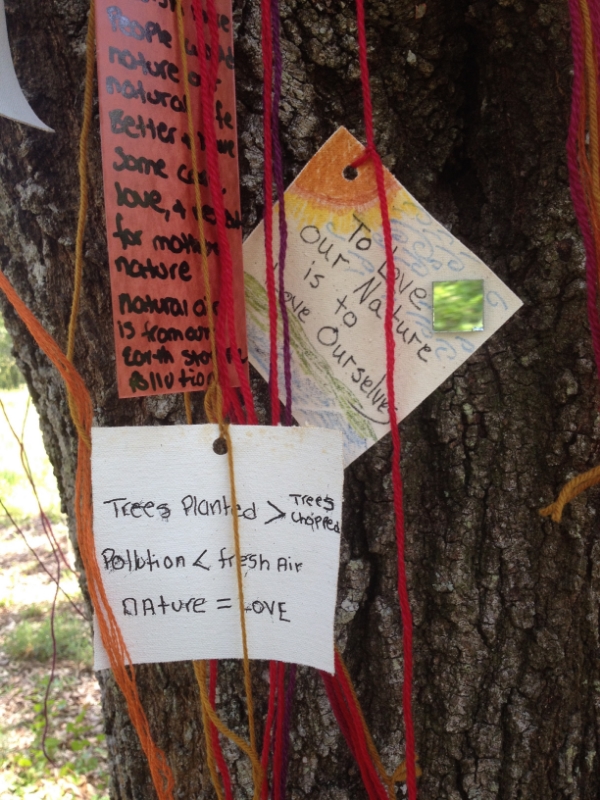 People
nature
natural life
Better
Some
love, +
for mother
nature
natural air
is from our
Earth stop
Pollution
To Love
Our Nature
is
to
Love Ourselves
Trees Planted > Trees Chopped
Pollution < fresh Air
nature = Love